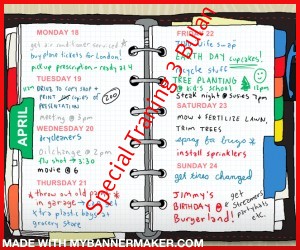 APRIL
MONDAY 18
get air conditioner serviced
buy plane tickets for London!
pick up prescription - ready at 4
TUESDAY 19
drive to copy shop +
print copies of
PRESENTATION
200
meeting @ 3pm
WEDNESDAY 20
drycleaners
oil change @ 2pm
flu shot → 3:30
movie @ 6
THURSDAY 21
throw out old paint
in garage
plastic bags at
grocery store
FRIDAY 22
swap
EARTH DAY cupcakes!
cycle stuff
TREE PLANTING
@ kid's School
steak night @ Susie's 7pm
SATURDAY 23
mow + fertilize LAWN,
TRIM TREES
spray for bugs
install sprinklers
SUNDAY 24
get tires changed
JIMMY'S
BIRTHDAY @
Burgerland!
get
streamers
party hats
etc.
Special Training 3-Brian
MADE WITH MYBANNERMAKER.COM